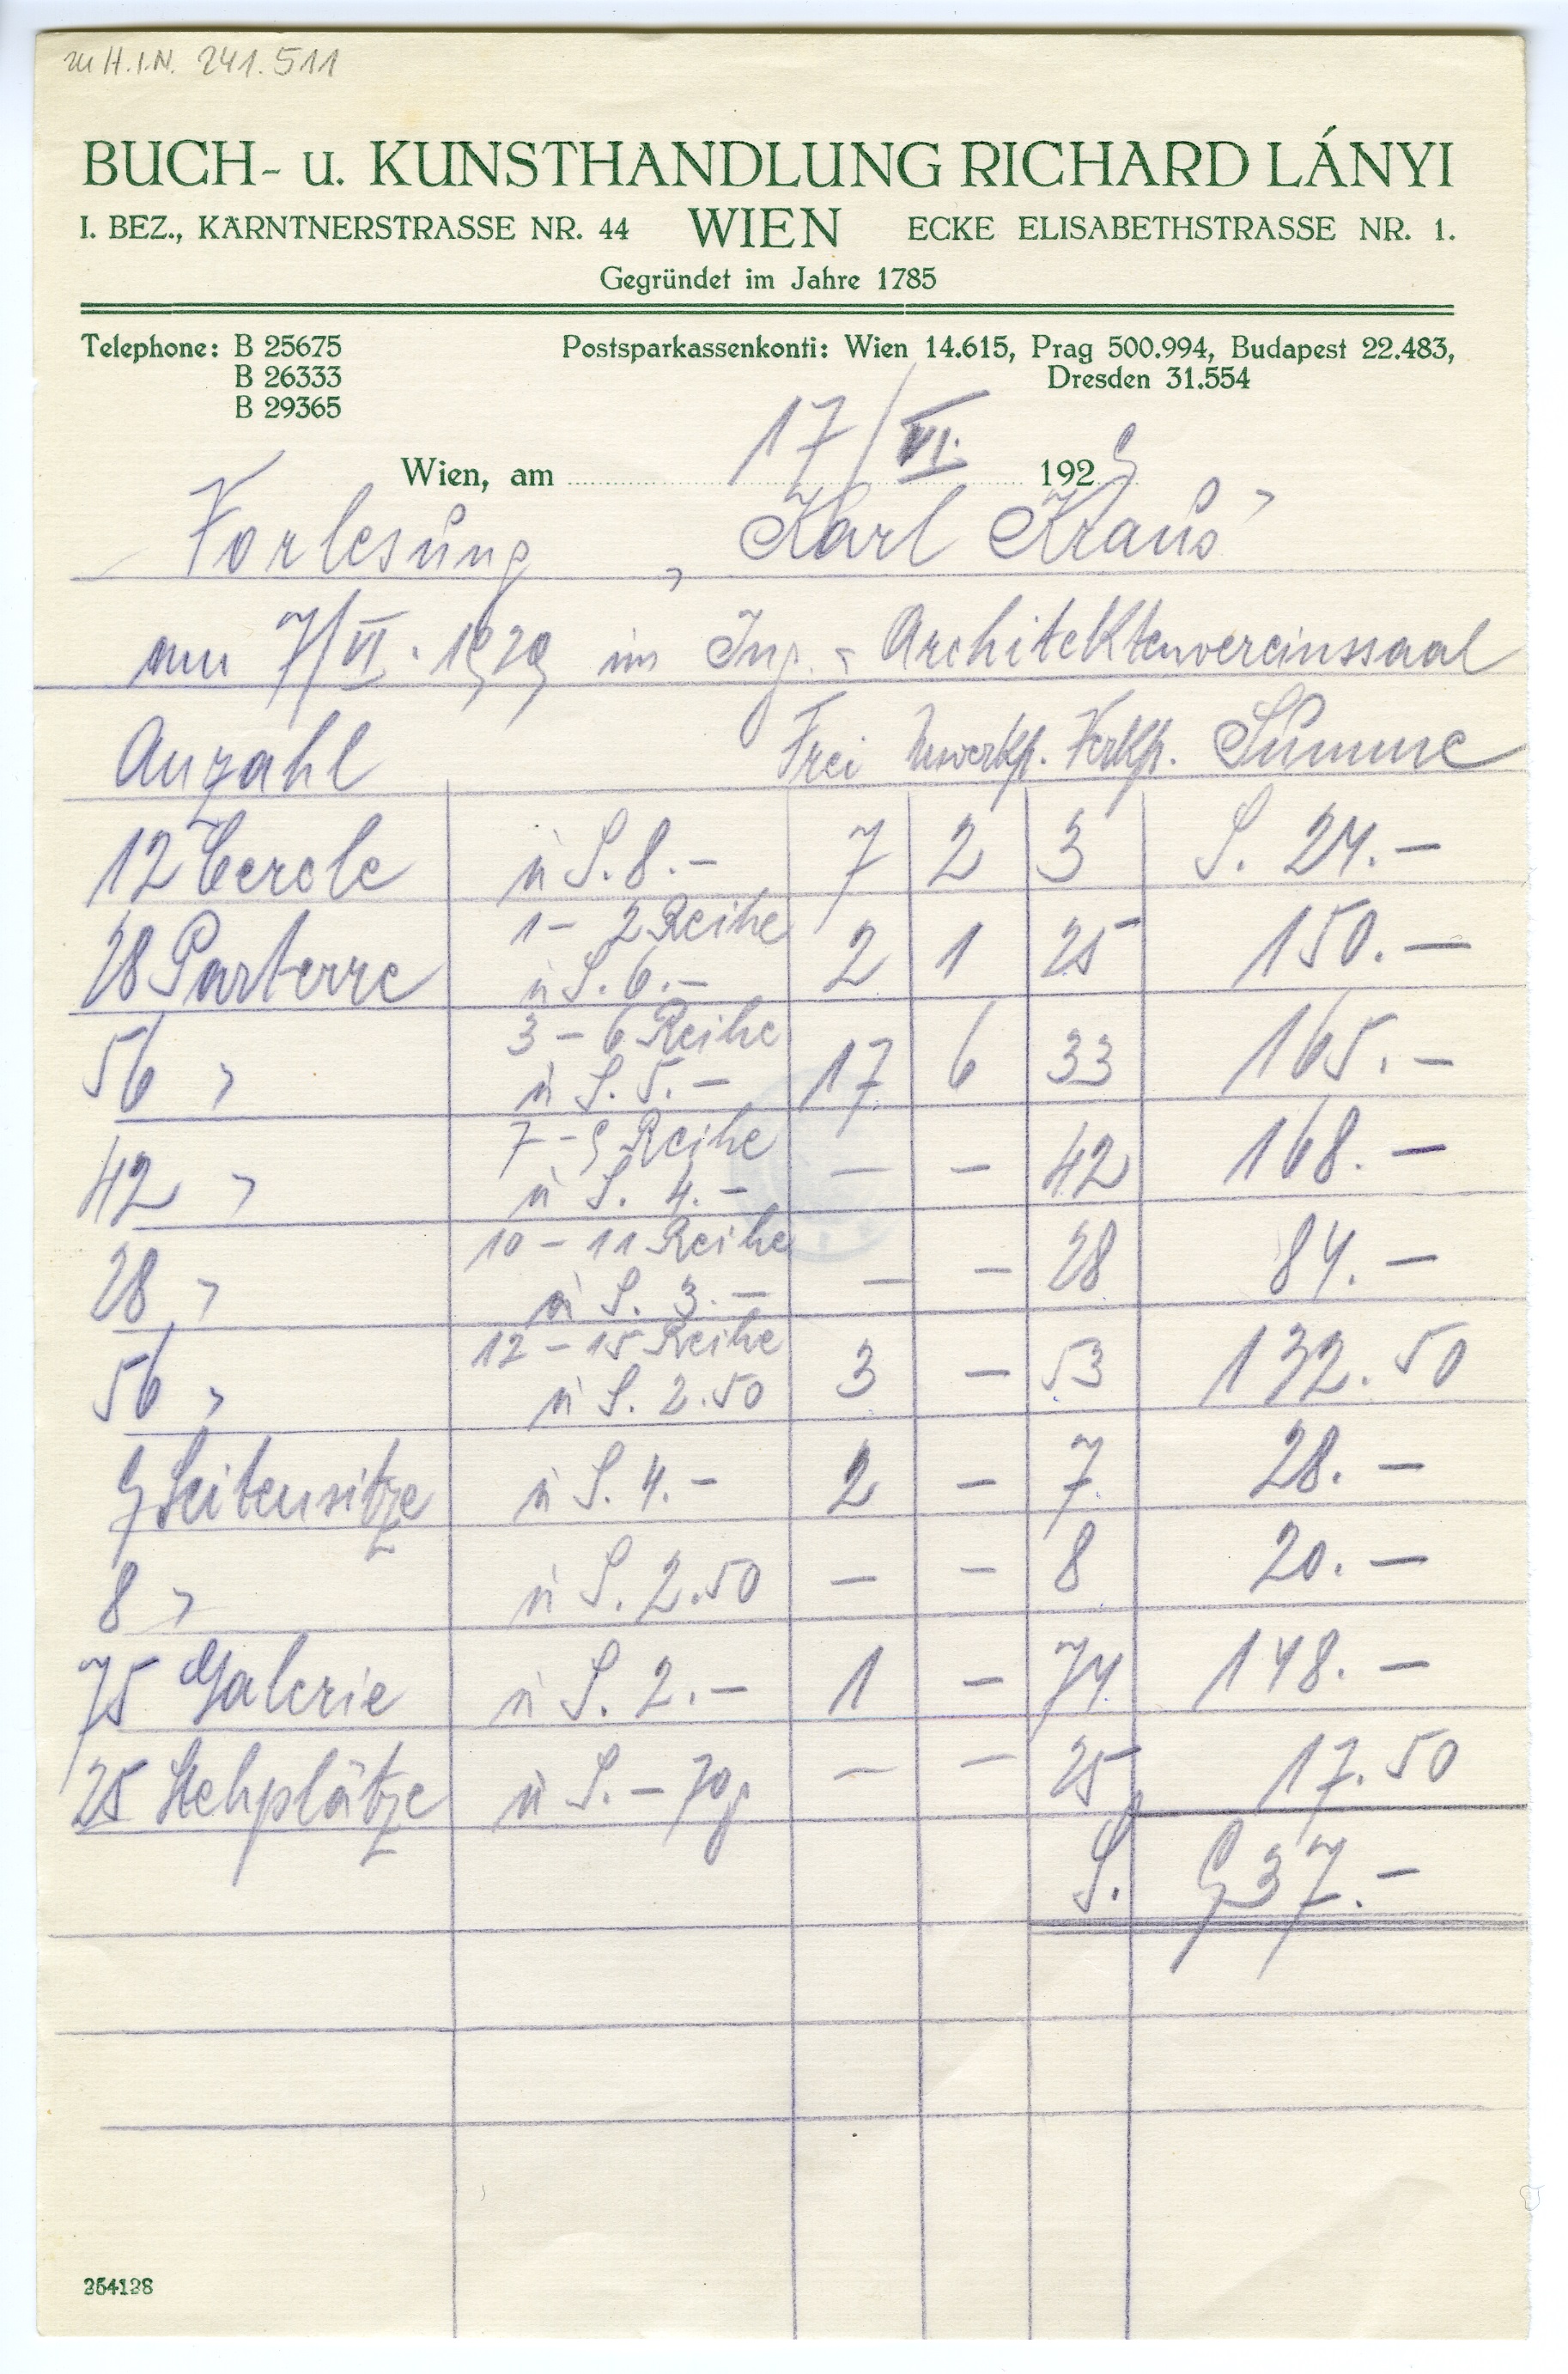 zu H.I.N. 241.511
BUCH- u. KUNSTHANDLUNG RICHARD LÁNYI
I. BEZ., KÄRNTNERSTRASSE NR. 44 WIEN ECKE ELISABETHSTRASSE NR. 1.
Gegründet im Jahre 1785
Telephone: B 25675 Postsparkassenkonti: Wien 14.615, Prag 500.994, Budapest 22.483,
B 26333 Dresden 31.554
B 29365
Wien, am 17/VI. 1929
Vorlesung „Karl Kraus"
am 7/VI. 1929 im Ing. - Architektenvereinssaal
Anzahl Frei Unverkf. Verkf. Summe
12 Cercle à S. 8.— 7 2 3 S. 24.—
1 – 2 Reihe
28 Parterre à S. 6.— 2 1 25 150.—
3 – 6 Reihe
56 " à S. 5.— 17 6 33 165.—
7 – 9 Reihe
42 " à S. 4.— — — 42 168.—
10 – 11 Reihe
28 " à S. 3.— — — 28 84.—
12 – 15 Reihe
56 " à S. 2.50 3 — 53 132.50
9 Seitensitze à S. 4.— 2 — 7 28.—
8 " à S. 2.50 — — 8 20.—
75 Galerie à S. 2.— 1 — 74 148.—
25 Stehplätze à S. —70g — — 25 17.50
S. 937.—
254128